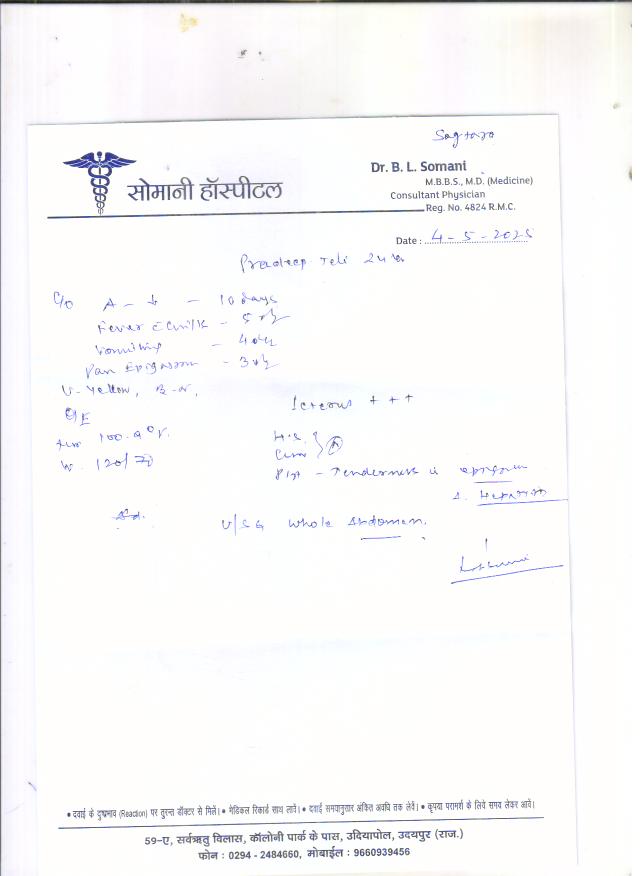 Sagtara
सोमानी हॉस्पीटल
Dr. B. L. Somani
M.B.B.S., M.D. (Medicine)
Consultant Physician
Reg. No. 4824 R.M.C.
Date : 4-5-2025
Pradeep Teli 24
C/o A - ↓ - 10 days
Fever c chills - 5
Vomiting - 4
Pain Epigastrium - 3
U-Yellow,
O/E
Icterous + + +
100.
H.S.
120/70
P/A - Tenderness in epigastrium
U/S G Whole Abdomen.
• दवाई के दुष्प्रभाव (Reaction) पर तुरन्त डॉक्टर से मिलें। • मेडिकल रिकार्ड साथ लावें। • दवाई समयानुसार अंकित अवधि तक लेवें। • कृपया परामर्श के लिये समय लेकर आवें।
59-ए, सर्वऋतु विलास, कॉलोनी पार्क के पास, उदियापोल, उदयपुर (राज.)
फोन : 0294 - 2484660, मोबाईल : 9660939456